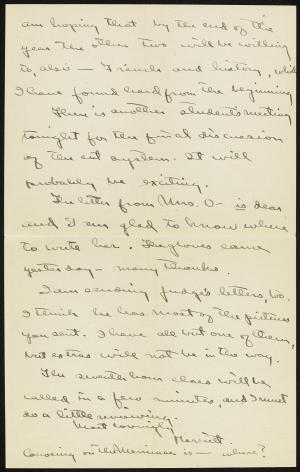 am hoping that by the end of the
year the other two will be willing
to, also — French and history, which
I have found hard from the beginning
There is another students' meeting
tonight for the final discussion
of the cut system. It will
probably be exciting.
The letter from Mrs. O- is dear
and I am glad to know where
to write her. The gloves came
yesterday — many thanks.
I am sending Judge's letters, too.
I think he has most of the pictures
you sent. I have all but one of them,
but extras will not be in the way.
The seventh hour class will be
called in a few minutes, and I must
do a little reviewing.
Most lovingly
Harriet.
Canoeing on the Merrimac is — where?